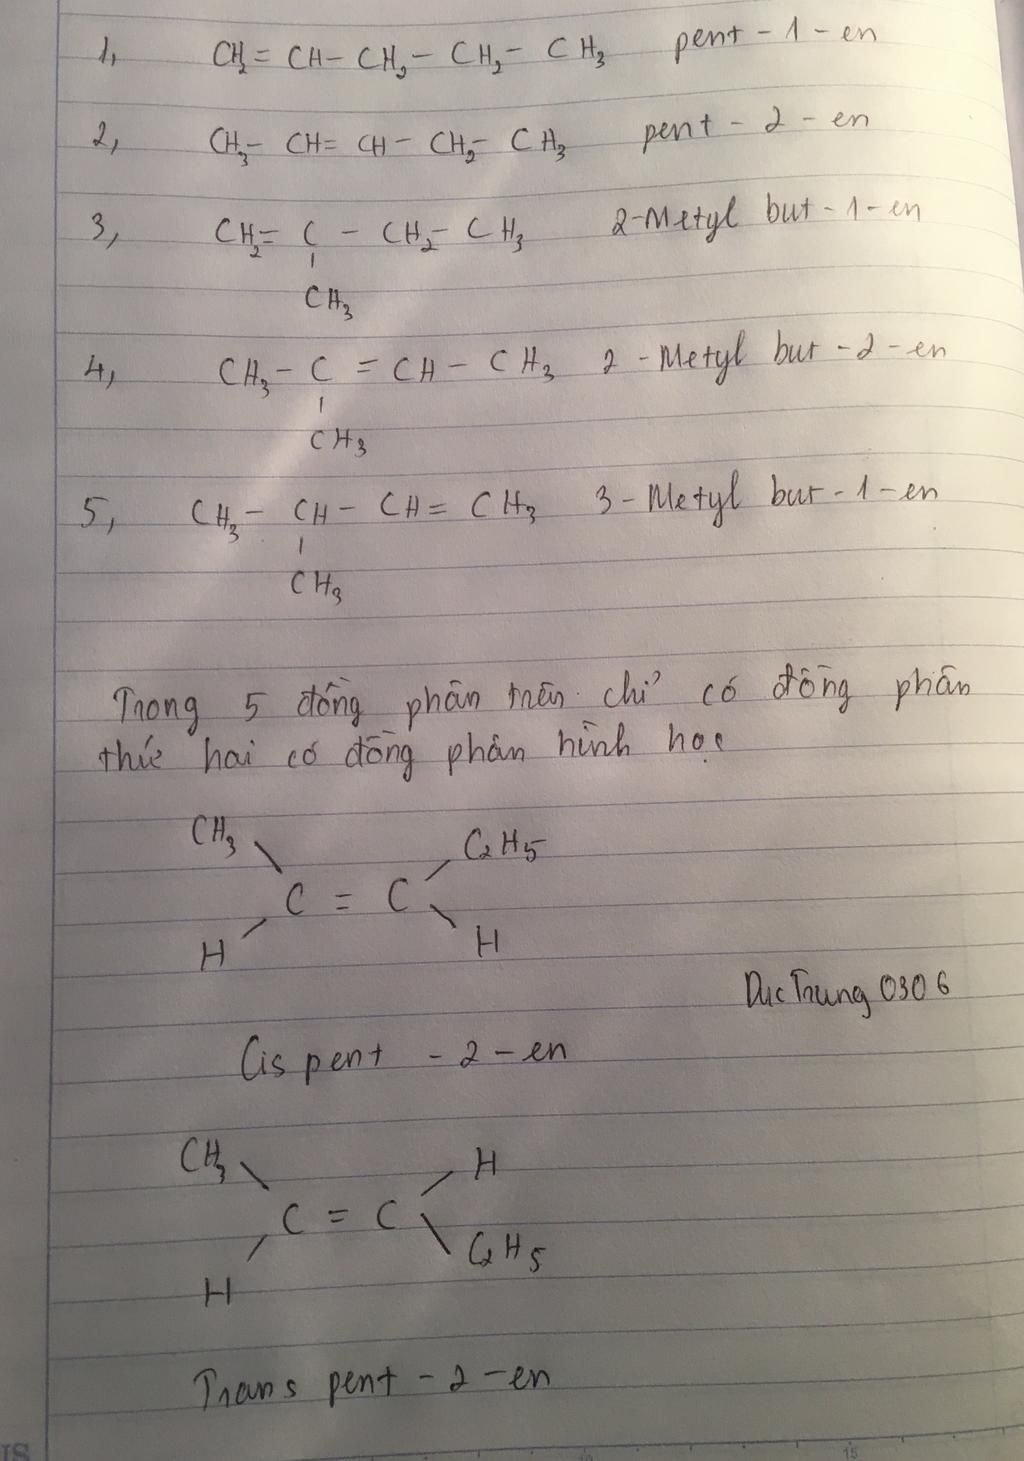 1, CH₂ = CH - CH₂ - CH₂ - CH₃ pent - 1 - en
2, CH₃ - CH = CH - CH₂ - CH₃ pent - 2 - en
3, CH₂ = C - CH₂ - CH₃ 2-Metyl but - 1 - en
CH₃
4, CH₃ - C = CH - CH₃ 2 - Metyl but - 2 - en
CH₃
5, CH₃ - CH - CH = CH₃ 3 - Metyl but - 1 - en
CH₃
Trong 5 đồng phân trên chỉ có đồng phân
thứ hai có đồng phân hình học
CH₃ C₂H₅
C = C
H H
Duc Trung 0306
Cis pent - 2 - en
CH₃ H
C = C
H C₂H₅
Trans pent - 2 - en
15